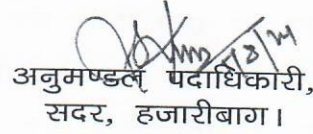 अनुमण्डल पदाधिकारी,
सदर, हजारीबाग।